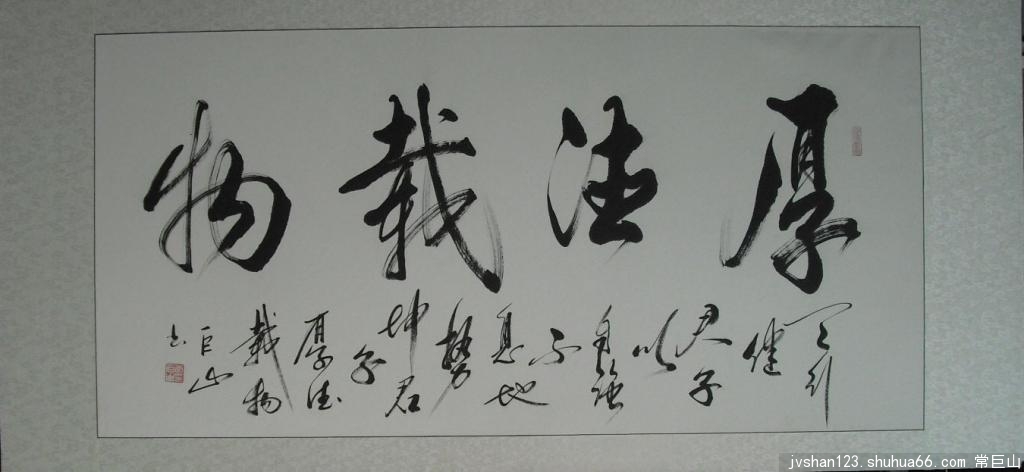 厚德载物
天行
健
君子
以
自强
不
息地
势
坤君
子
厚德
载物
巨山
书
jvshan123.shuhua66.com 常巨山